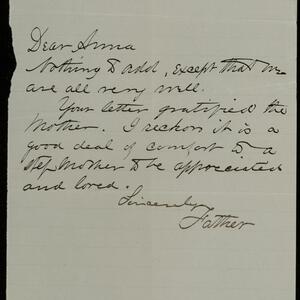 Dear Anna
Nothing to add, except that we
are all very well.
Your letter gratified the
Mother. I reckon it is a
good deal of comfort to a
step Mother to be appreciated
and loved.
Sincerely
Father